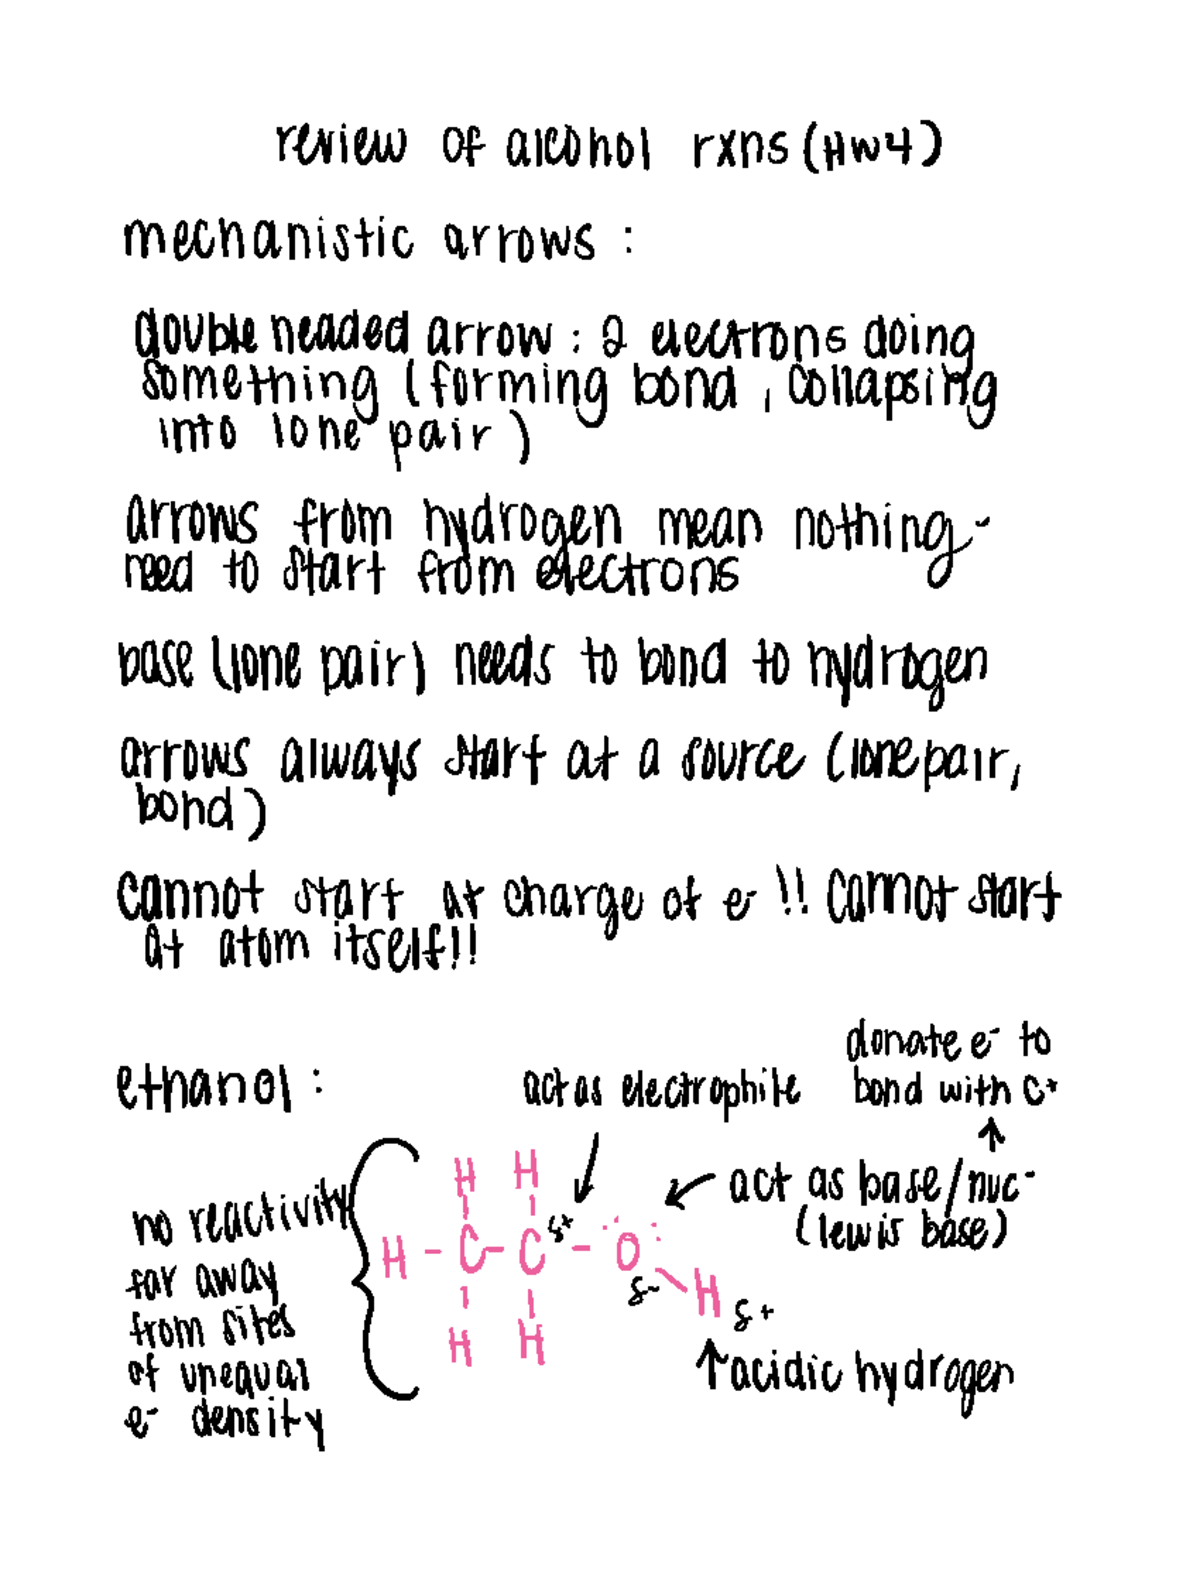 review of alcohol rxns (HW4)
mechanistic arrows :
double headed arrow : 2 electrons doing
something (forming bond, collapsing
into lone pair)
arrows from hydrogen mean nothing-
need to start from electrons
base (lone pair) needs to bond to hydrogen
arrows always start at a source (lone pair,
bond)
cannot start at charge of e- !! cannot start
at atom itself!!
ethanol :
act as electrophile
donate e- to
bond with C+
no reactivity
far away
from sites
of unequal
e- density
act as base/nuc-
(lewis base)
H H
H - C - C δ+ - O
δ- H δ+
H H
↑ acidic hydrogen